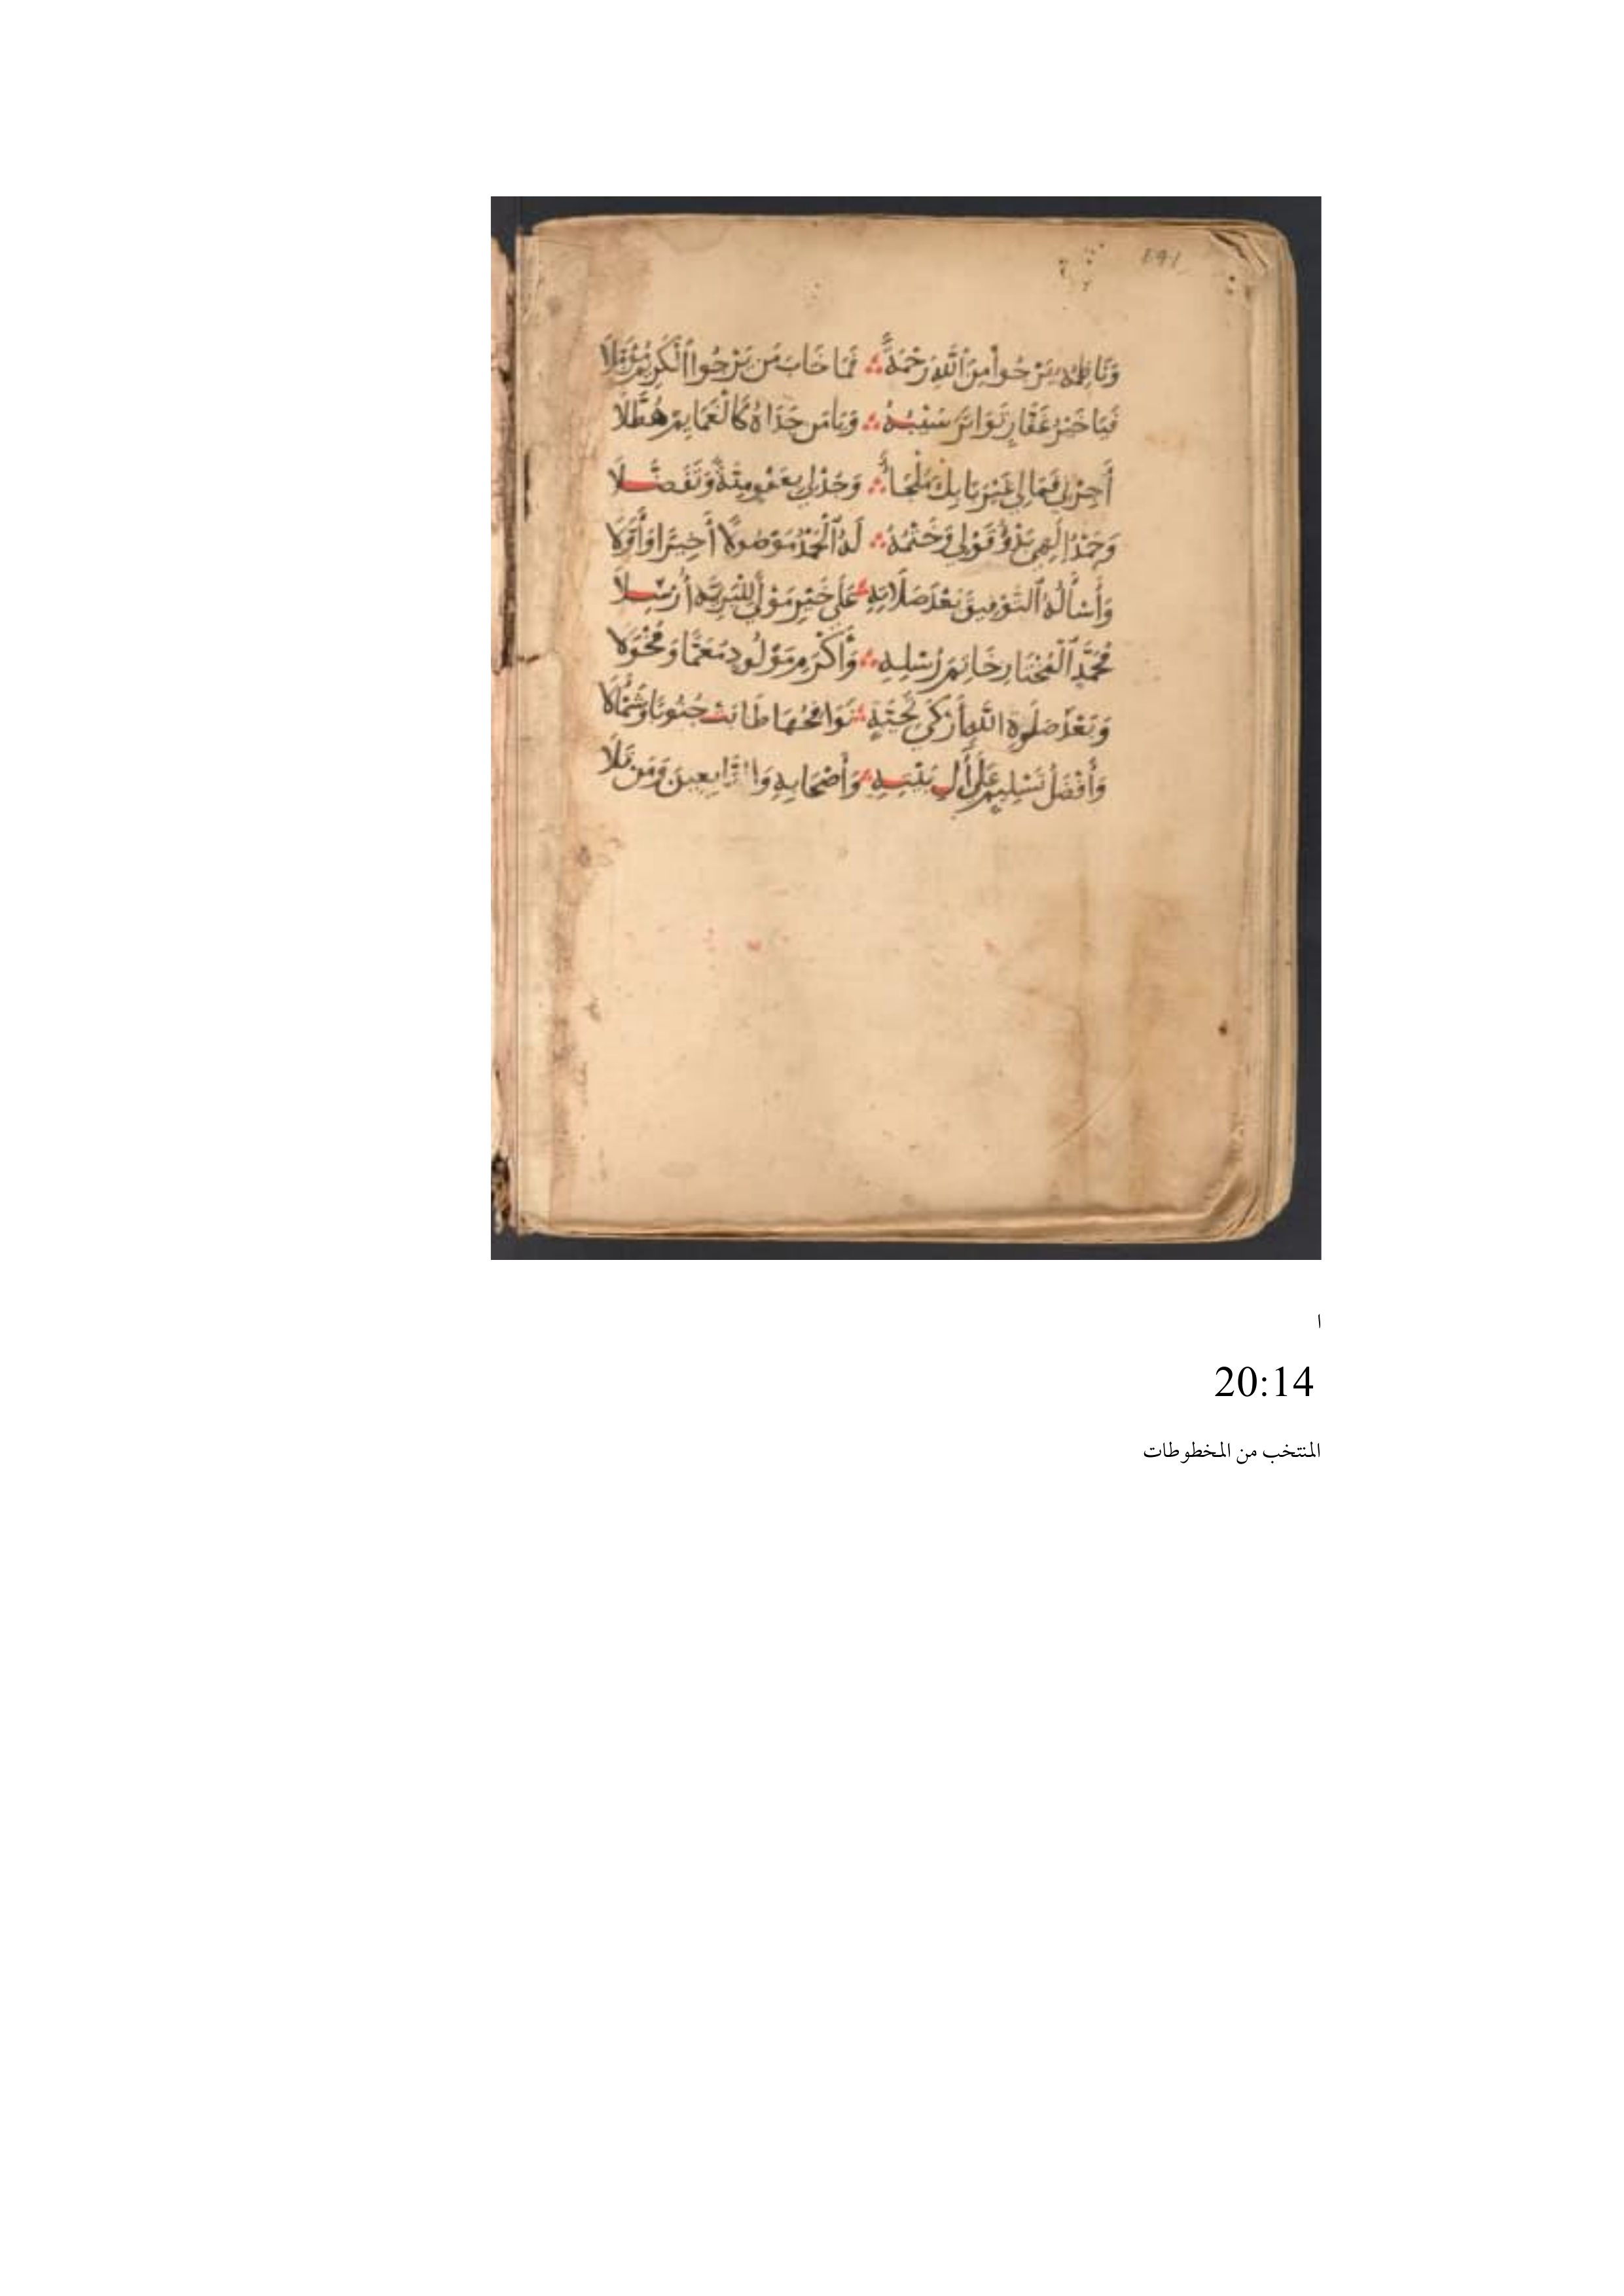 ١٩٢
وَنَاظِمُهُ يَرْجُوا مِنَ اللَّهِ رَحْمَةً ∴ فَمَا خَابَ مَن يَرْجُوا الْكَرِيمَ مُؤَمِّلَا
فَيَا خَيْرَ غَفَّارٍ تَوَاتَرَ سَيْبُهُ ∴ وَيَا مَن جَدَاهُ كَالْغَمَايِمِ هُطَّلَا
أَجِرْنِي فَمَا لِي غَيْرَ بَابِكَ مَلْجَأٌ ∴ وَجُدْ لِي بِعَفْوٍ مِنَّةً وَتَفَضُّلَا
وَحَمْدُ إِلَهِي بَدْؤُ قَوْلِي وَخَتْمُهُ ∴ لَهُ الْحَمْدُ مَوْصُولًا أَخِيرًا وَأَوَّلَا
وَأَسْأَلُهُ التَّوْفِيقَ بَعْدَ صَلَاتِهِ ∴ عَلَى خَيْرِ مَوْلًى لِلْبَرِيَّةِ أُرْسِلَا
مُحَمَّدٍ الْمُخْتَارِ خَاتِمِ رُسْلِهِ ∴ وَأَكْرَمِ مَوْلُودٍ مُعَمًّا وَمُخْوَلَا
وَبَعْدَ صَلَوةِ اللَّهِ أَزْكَى تَحِيَّةٍ ∴ نَوَافِحُهَا طَابَتْ جَنُوبًا وَشَمْأَلَا
وَأَفْضَلُ تَسْلِيمٍ عَلَى أَلِ بَيْتِهِ ∴ وَأَصْحَابِهِ وَالتَّابِعِينَ وَمَن تَلَا
ا
20:14
المنتخب من المخطوطات